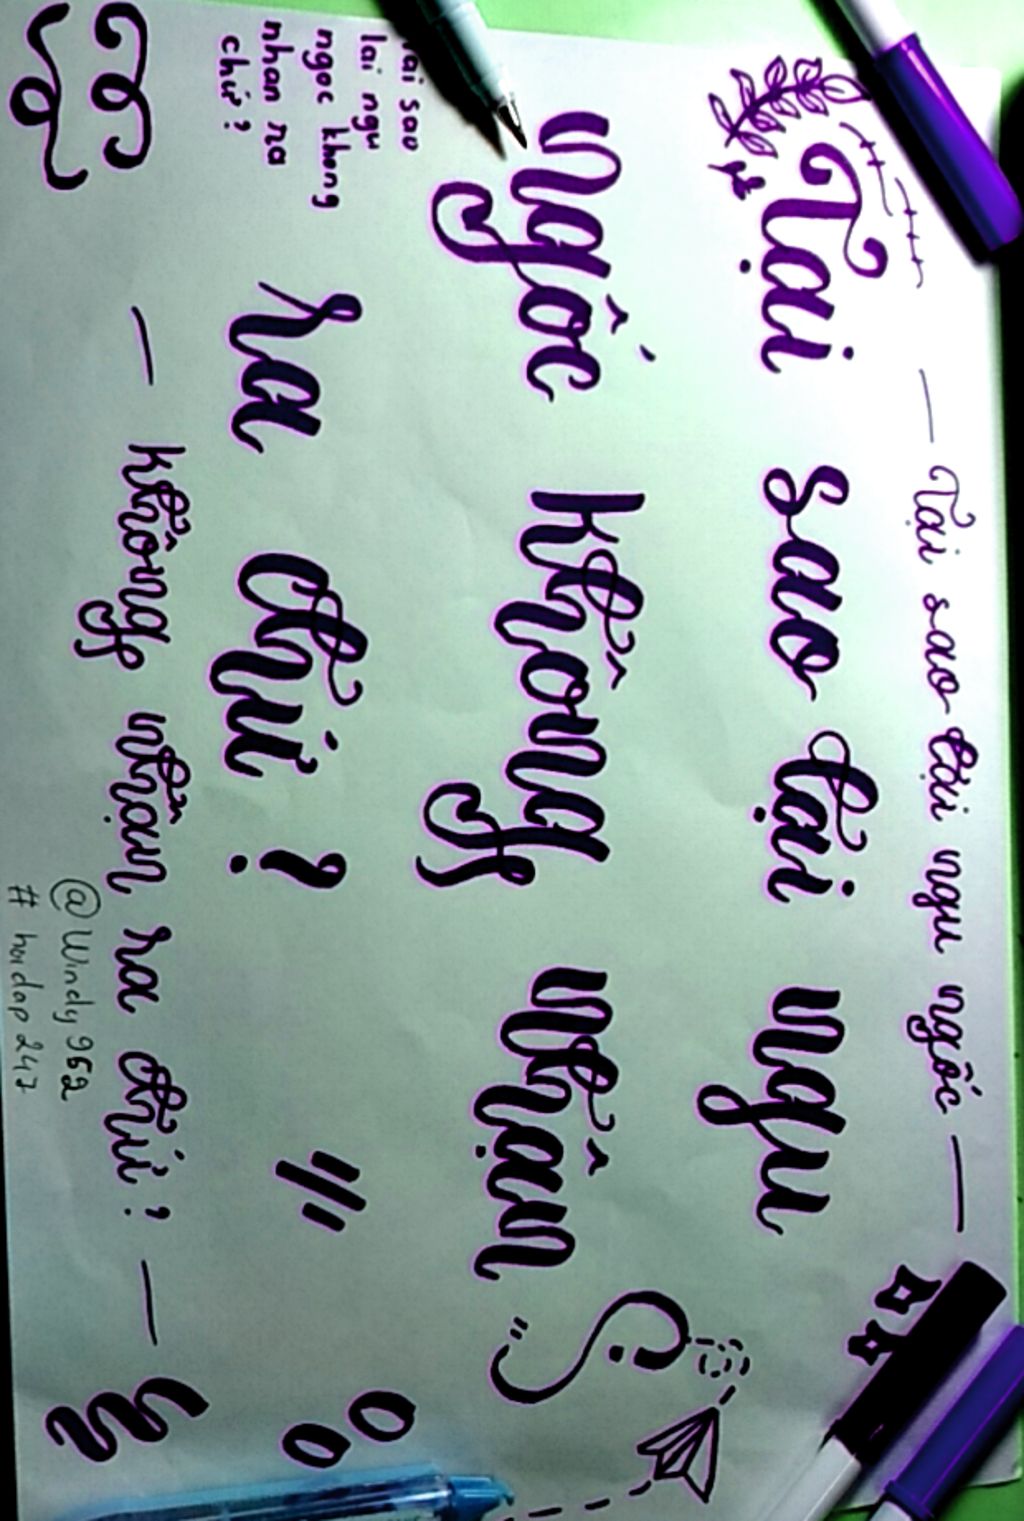 — Tại sao lại ngu ngốc —
Tại sao lại ngu
ngốc không nhận
ra chứ ?
tai sao
lai ngu
ngoc khong
nhan ra
chứ ?
— không nhận ra chứ ? —
@Windy962
# hoidap247